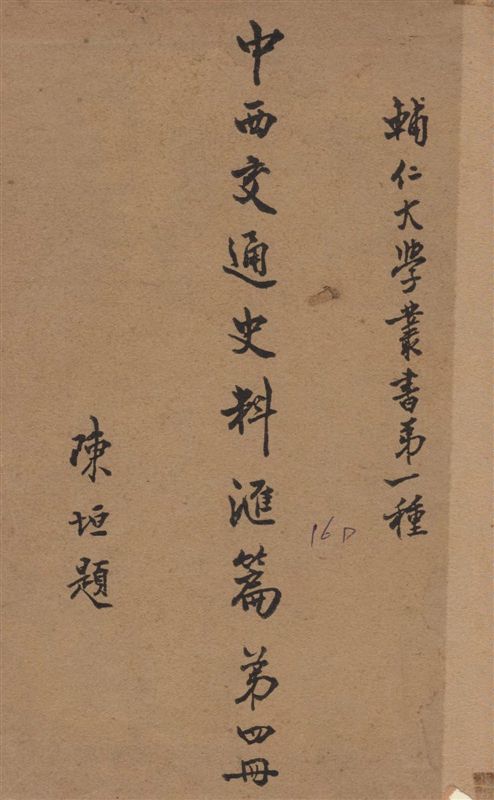 輔仁大學叢書第一種
中西交通史料滙篇第四冊
陳垣題
16D